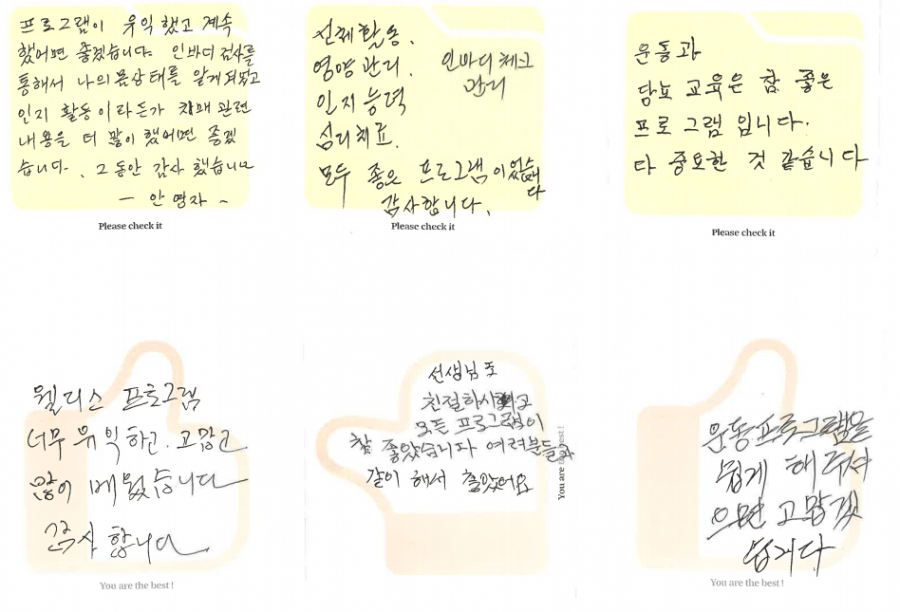 프로그램이 유익했고 계속
했어면 좋겠습니다. 인바디 검사를
통해서 나의 몸상태를 알게 되었고
인지 활동이라든가 치매 관련
내용을 더 많이 했어면 좋겠
습니다. 그동안 감사 했습니다
- 안영자 ~
Please check it
신체활동.
영양관리.
인지능력
심리치료.
인바디체크
관리
모두 좋은 프로그램이었습니다
감사합니다.
Please check it
운동과
당뇨 교육은 참 좋은
프로그램 입니다.
다 중요한 것 같습니다
Please check it
웰디스 프로그램
너무 유익하고. 고맙고
많이 배웠습니다
감사 합니다
You are the best!
선생님도
친절하시고
모든 프로그램이
참 좋았습니다 여러분들과
같이 해서 좋았어요
You are the best!
운동프로그램을
쉽게 해 주셔
으면 고맙겟
습니다
You are the best!